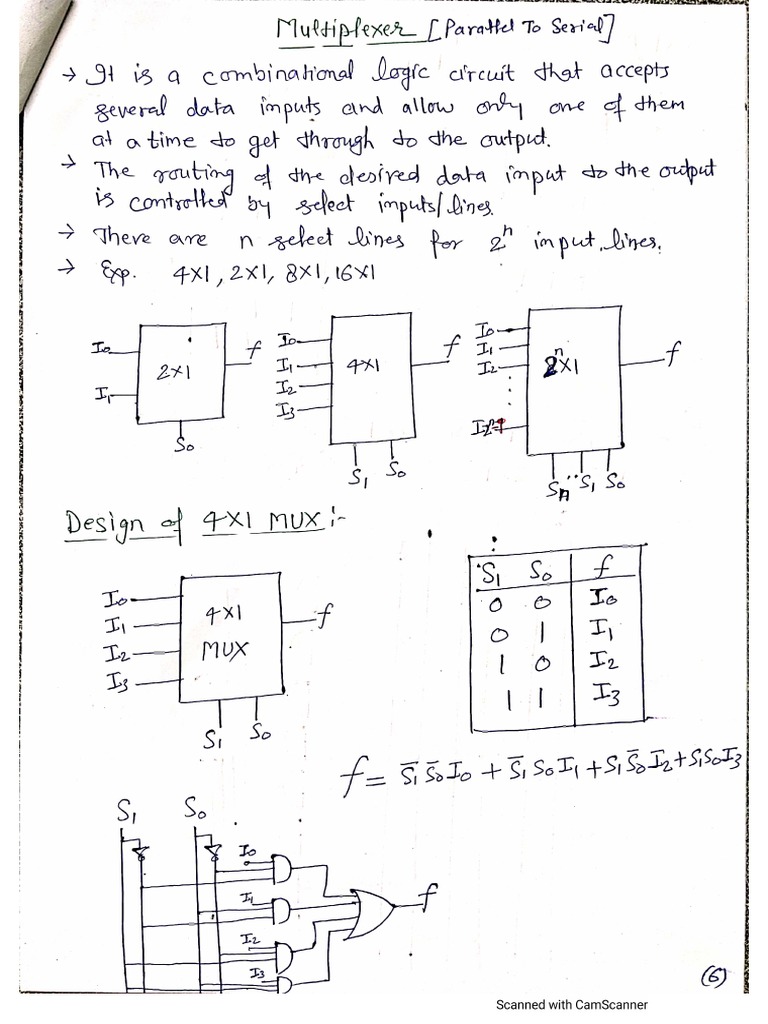 Multiplexer [Parallel To Serial]
→ It is a combinational logic circuit that accepts
several data inputs and allow only one of them
at a time to get through to the output.
→ The routing of the desired data input to the output
is controlled by select inputs/lines.
→ There are n select lines for 2ⁿ input lines.
→ Exp. 4X1, 2X1, 8X1, 16X1
I0 I1 2X1 f S0
I0 I1 I2 I3 4X1 f S1 S0
I0 I1 I2 2ⁿX1 f Sn S1 S0
Design of 4X1 MUX :-
I0 I1 I2 I3 4X1 MUX f S1 S0
S1 S0 f
0 0 I0
0 1 I1
1 0 I2
1 1 I3
f = S̅1 S̅0 I0 + S̅1 S0 I1 + S1 S̅0 I2 + S1 S0 I3
S1 S0
I0
I1
f
I2
I3
(6)
Scanned with CamScanner